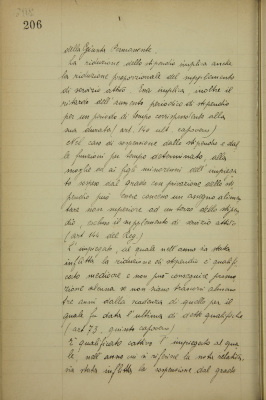 206
della Giunta Permanente.
La riduzione dello stipendio implica anche
la riduzione proporzionale del supplemento
di servizio attivo. Essa implica inoltre il
ritardo dell'aumento periodico di stipendio
per un periodo di tempo corrispondente alla
sua durata (art. ult. capoverso)
Nel caso di sospensione dallo stipendio e dal
le funzioni per tempo determinato, alla
moglie od ai figli minorenni dell'impiega
to sospeso dal grado con privazione dello sti
pendio può essere concesso un assegno alimen
tare non superiore ad un terzo dello stipen
dio, escluso il supplemento di servizio attivo
(art. 144 del Reg.)
L'impiegato, al quale nell'anno sia stata
inflitta la riduzione di stipendio è qualifi
cato mediocre e non può conseguire promo
zione alcuna se non siano trascorsi almeno
tre anni dalla scadenza di quello per il
quale fu data l'ultima di dette qualifiche
(art. 73, quinto capoverso)
È qualificato cattivo l'impiegato al qua
le, nell'anno cui si riferisce la nota relativa,
sia stata inflitta la sospensione dal grado